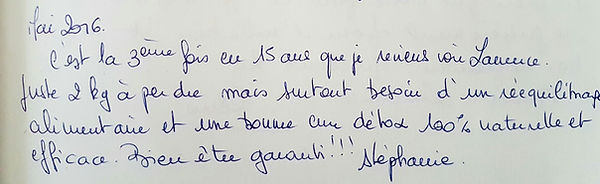 Mai 2016.
C'est la 3ème fois en 15 ans que je reviens voir Laurence.
Juste 2 kg à perdre mais surtout besoin d'un rééquilibrage
alimentaire et une bonne cure détox 100% naturelle et
efficace. Bien être garanti!!! Stéphanie.